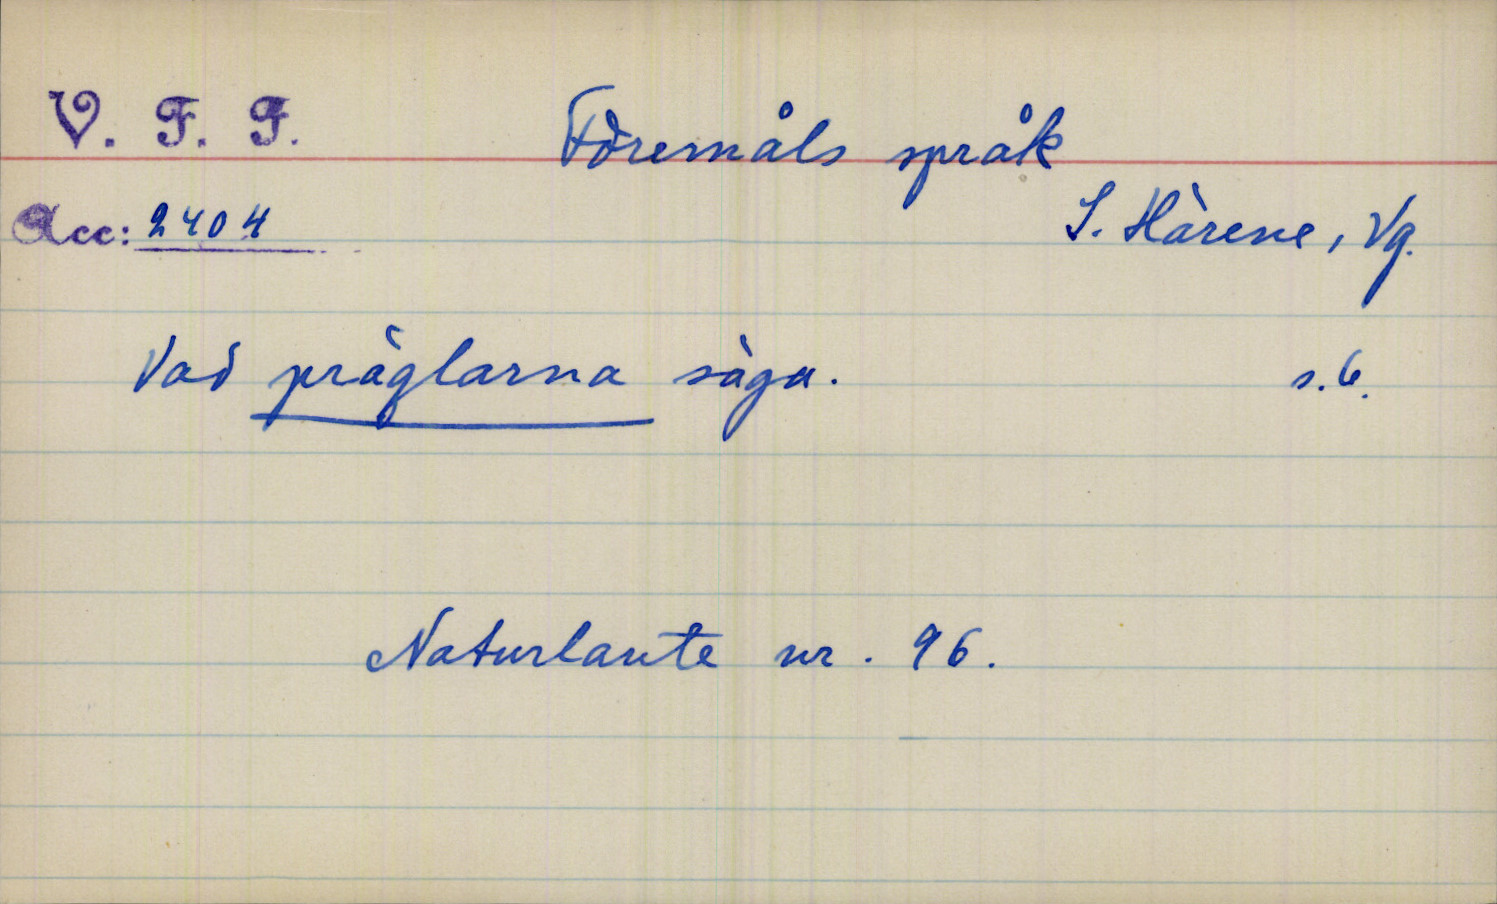 V. F. F.
Föremåls språk
Acc: 2404
S. Härene, Vg.
Vad präglarna säga.
s. 6.
Naturlaute nr. 96.